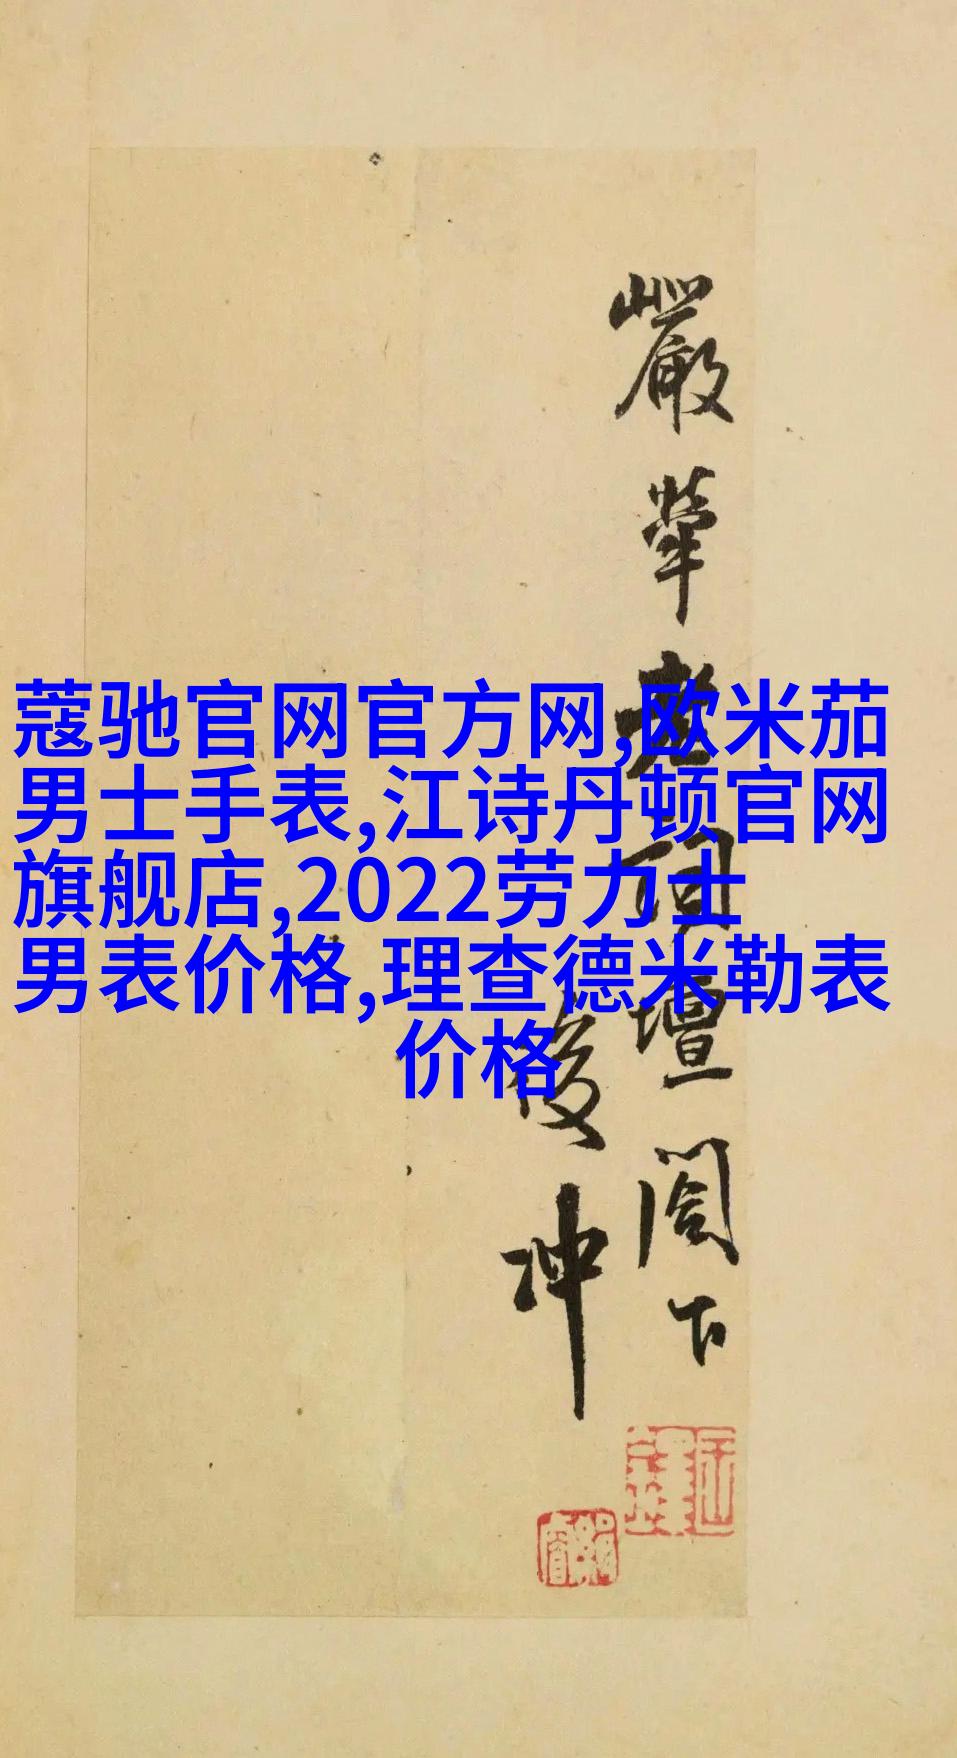 蔻驰官网官方网,欧米茄
男士手表,江诗丹顿官网
旗舰店,2022劳力士
男表价格,理查德米勒表
价格
嚴犖老詞壇閣下
俊冲